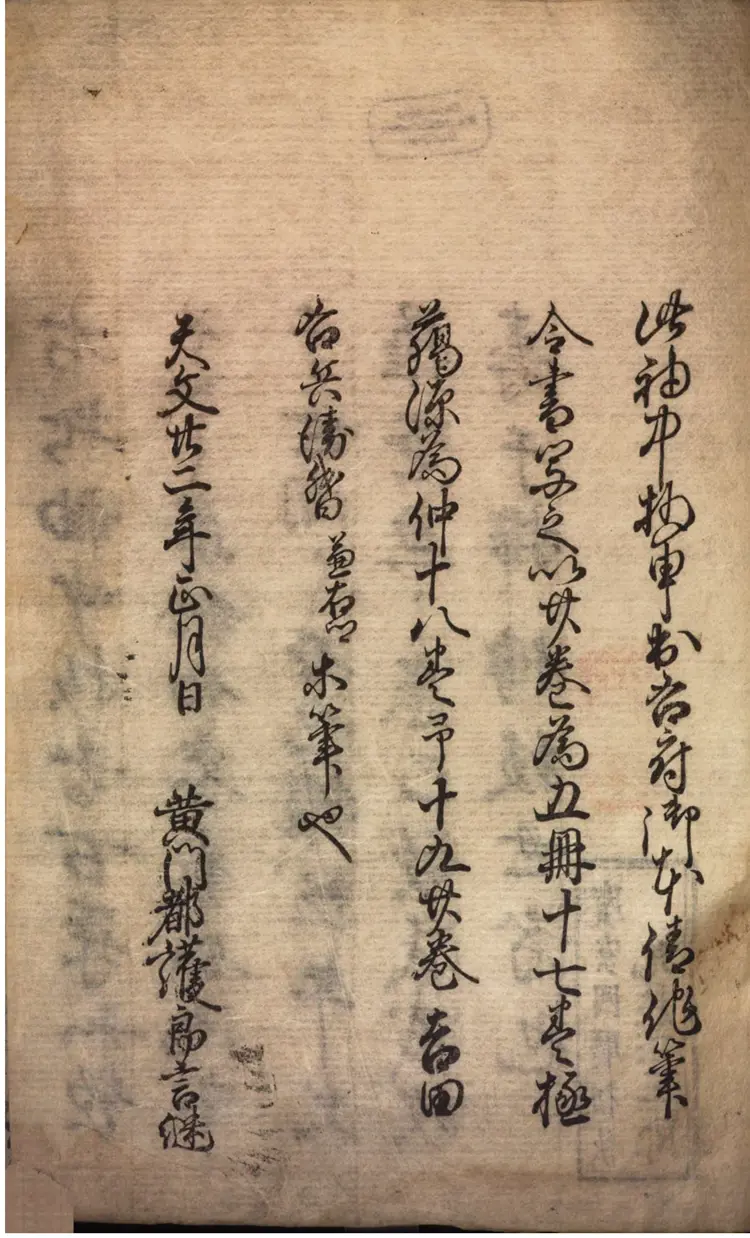 此袖中抄申出右府御本倩他筆
令書写之以廿巻為五冊十七巻極
臈源為仲十八巻予十九廿巻吉田
右兵衛督兼右等筆也
天文廿二年正月日 黄門都護郎言継